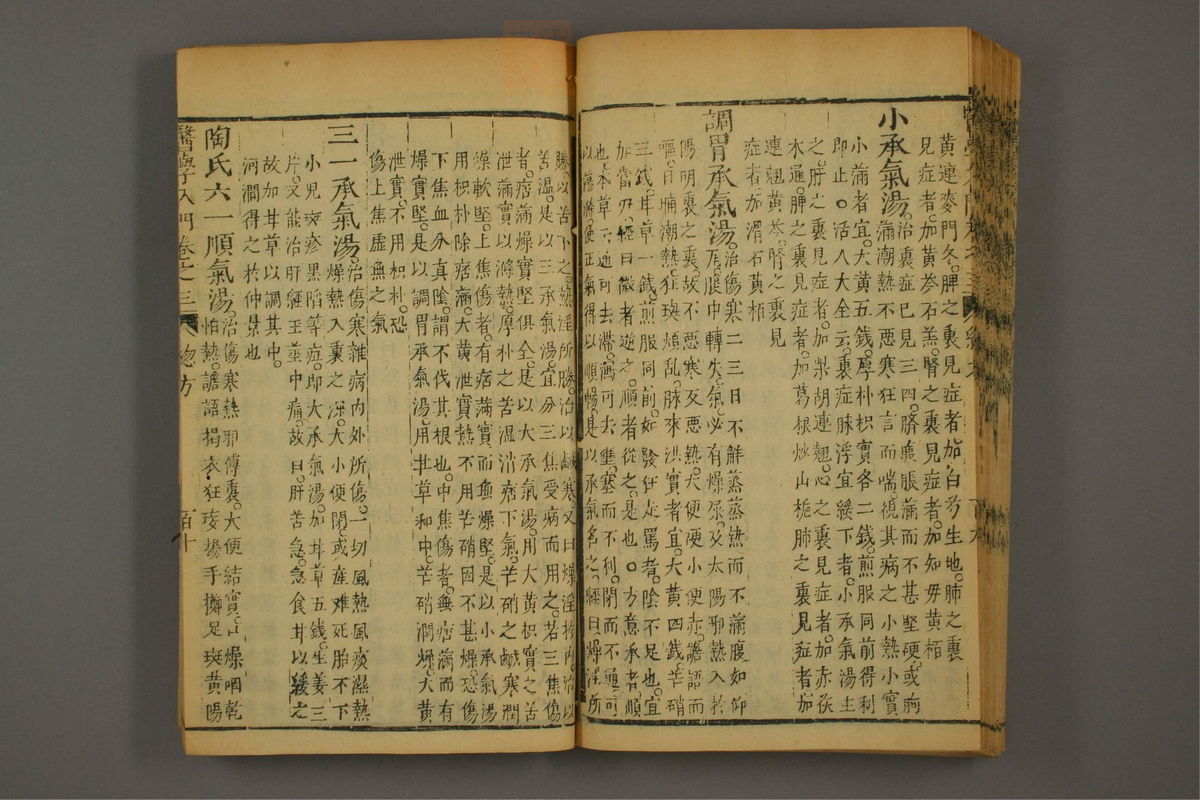 黃連麥門冬脾之裏見症者加白芍生地肺之裏
見症者加黃芩石羔腎之裏見症者加知毋黃栢
小承氣湯治裏症已見三四臍腹脹滿而不甚堅硬或胸
滿潮熱不惡寒狂言而喘視其病之小熱小實
小滿者宜大黃五錢厚朴枳實各二錢煎服同前得利
即止活人大全云裏症脉浮宜緩下者小承氣湯主
之肝之裏見症者加柴胡連翹心之裏見症者加赤茯
木通脾之裏見症者加葛根炒山梔肺之裏見症者加
連翹黃芩腎之裏見
症者加滑石黃栢
調胃承氣湯治傷寒二三日不解蒸蒸熱而不滿腹如仰
瓦腹中轉失氣必有燥屎及太陽邪熱入於
陽明裏之裏故不惡寒反惡熱大便硬小便赤譫語而
嘔日晡潮熱狂斑煩乱脉來洪實者宜大黃四錢芒硝
三錢甘草一錢煎服同前如發狂走罵者陰不足也宜
加當歸經曰微者逆之順者從之是也○方意承者順
也本草云通可去滯瀉可去壅塞而不利閉而不通可
以蕩滌使正氣得以順暢是以承氣名之經曰燥淫所
勝以苦下之熱淫所勝治以鹹寒又曰燥淫於內治以
苦温是以三承氣湯宜分三焦受病而用之若三焦傷
者痞滿燥實堅俱全是以大承氣湯用大黃枳實之苦
泄滿實以滌熱厚朴之苦温消痞下氣芒硝之鹹寒潤
燥軟堅上焦傷者有痞滿實而無燥堅是以小承氣湯
用枳朴除痞滿大黃泄實熱不用芒硝因不甚燥恐傷
下焦血分真陰謂不伐其根也中焦傷者無痞滿而有
燥實堅是以調胃承氣湯用甘草和中芒硝潤燥大黃
泄實不用枳朴恐
傷上焦虛無之氣
三一承氣湯治傷寒雜病內外所傷一切風熱風痰濕熱
燥熱入裏之深大小便閉或産难死胎不下
小兒斑疹黑陷等症即大承氣湯加甘草五錢生姜三
片又能治肝經玉莖中痛故曰肝苦急急食甘以緩之
故加甘草以調其中
河澗得之於仲景也
陶氏六一順氣湯治傷寒熱邪傳裏大便結實口燥咽乾
怕熱譫語揭衣狂妄揚手擲足斑黃陽
醫學入門 卷之三 總方 百十